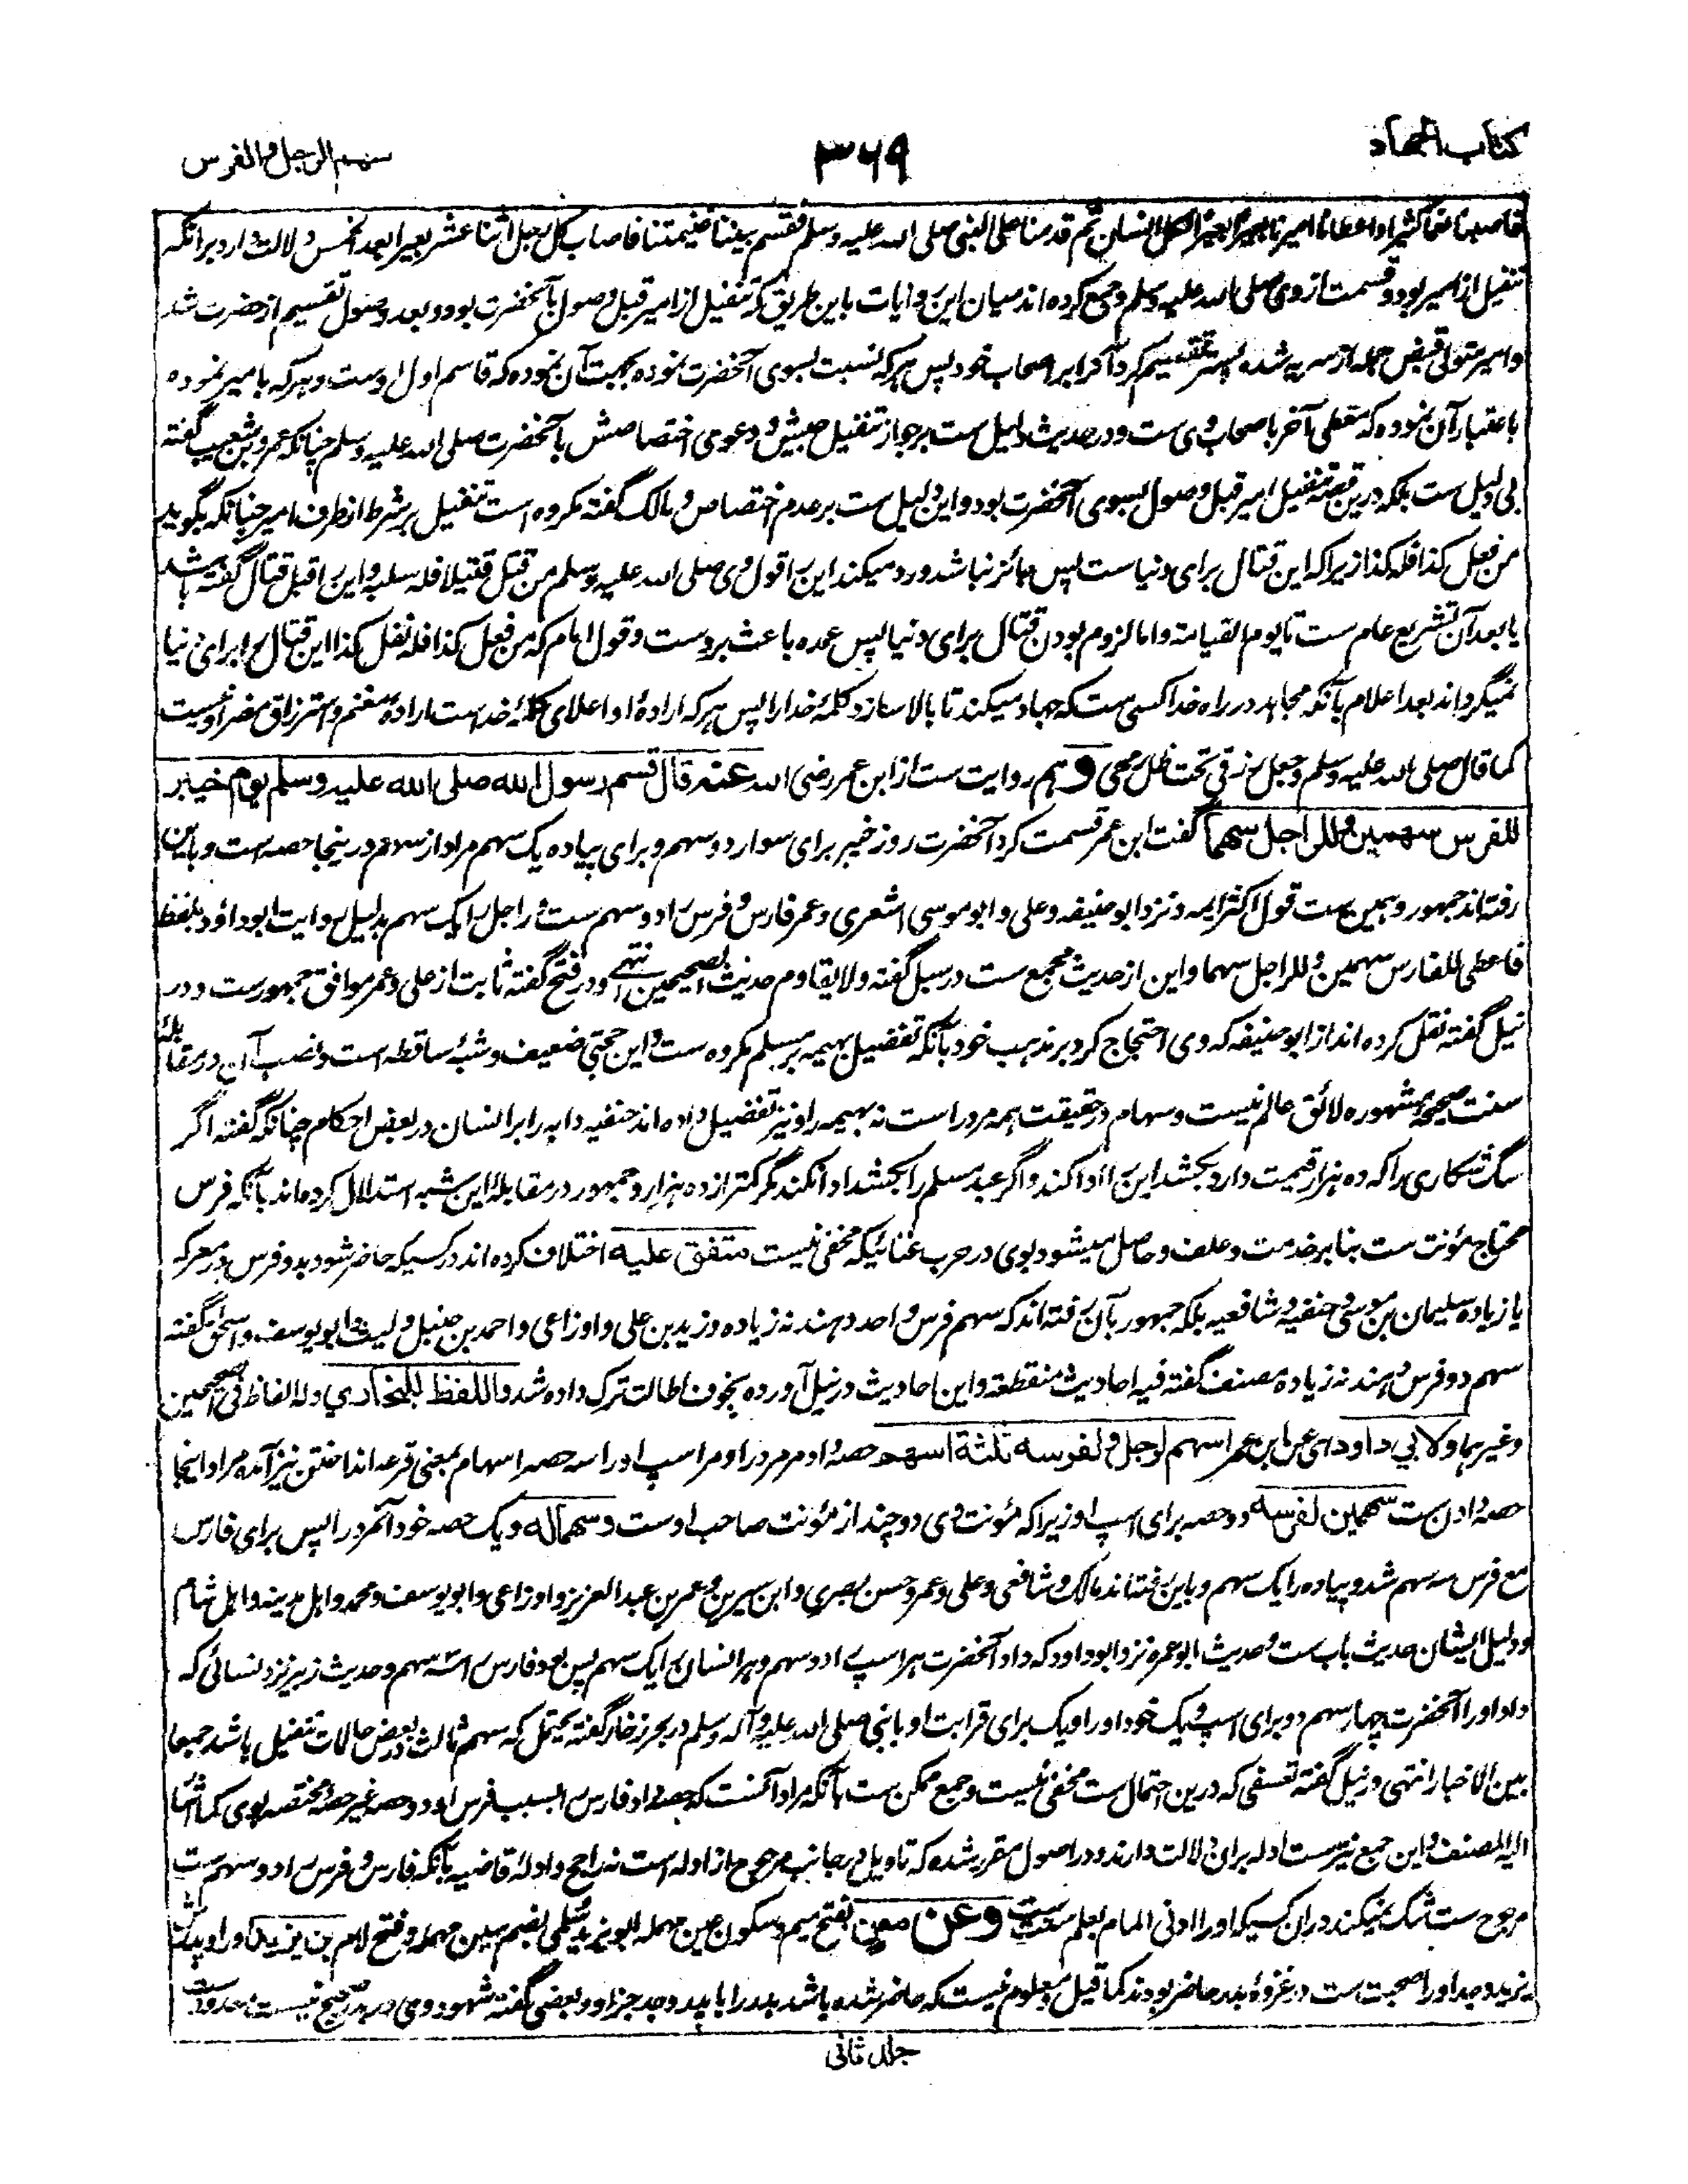 کتاب الجهاد
۳۶۹
سهم الرجل والفرس
فاصبنا نعما کثیرا و اعطانا امیرنا بعیرا بعیرا لکل انسان ثم قدمنا علی النبی صلی الله علیه وسلم فقسم بیننا غنیمتنا فاصاب کل رجل اثنا عشر بعیرا بعد الخمس دلالت دارد برانکه
تنفیل از امیر بود و قسمت از وی صلی الله علیه وسلم و جمع کرده اند میان این روایات باین طریق که تنفیل از امیر قبل وصول بآنحضرت بود و بعد وصول تقسیم از حضرت شد
و امیر متولی قبض جمله از سریه شده پستر تقسیم کرد آنرا بر اصحاب خود پس هر که نسبت بسوی آنحضرت نموده بجهت آن نموده که قاسم اول اوست و هر که بامیر نموده
باعتبار آن نموده که معطی آخر باصحاب وی ست و در حدیث دلیل ست بر جواز تنفیل جیش و دعوی اختصاصش بآنحضرت صلی الله علیه وسلم چنانکه عمرو بن شعیب گفته
بی دلیل ست بلکه درین قصه تنفیل امیر قبل وصول بسوی آنحضرت بود و این دلیل ست بر عدم اختصاص و مالک گفته مکروه است تنفیل بر شرط از طرف امیر چنانکه بگوید
من فعل کذا فله کذا زیرا که این قتال برای دنیا ست پس جائز نباشد و رد میکند این را قول وی صلی الله علیه وسلم من قتل قتیلا فله سلبه و این را قبل قتال گفته باشد
یا بعد آن تشریع عام ست تا یوم القیامة و اما لزوم بودن قتال برای دنیا پس عمده باعث بروست و قول امام که من فعل کذا فله نفل کذا این قتال را برای دنیا
نمیگرداند بعد اعلام بآنکه مجاهد در راه خدا کسی ست که جهاد میکند تا بالا سازد کلمۀ خدا را پس هر که ارادۀ او اعلای کلمۀ خداست ارادۀ مغنم و استرزاق مضر او نیست
کما قال صلی الله علیه وسلم وجعل رزقی تحت ظل رمحی و هم روایت ست از ابن عمر رضی الله عنه قال قسم رسول الله صلی الله علیه وسلم یوم خیبر
للفرس سهمین وللراجل سهما گفت ابن عمر قسمت کرد آنحضرت روز خیبر برای سوار دو سهم و برای پیاده یک سهم مراد از سهم درینجا حصه است و باین
رفته اند جمهور و همین ست قول اکثر ایمه و نزد ابوحنیفه و علی و ابو موسی اشعری و عمر فارس و فرس را دو سهم ست و راجل را یک سهم بدلیل روایت ابوداؤد بلفظ
فاعطی للفارس سهمین و للراجل سهما و این از حدیث مجمع ست در سبل گفته ولا یقاوم حدیث الصحیحین انتهے و در فتح گفته ثابت از علی و عمر موافق جمهورست و در
نیل گفته نقل کرده اند از ابوحنیفه که وی احتجاج کرد بر مذهب خود بآنکه تفضیل بهیمه بر مسلم مکروه ست و این حجتی ضعیف و شبۀ ساقطه است و نصب آن در مقابلۀ
سنت صحیحه مشهوره لائق عالم نیست و سهام در حقیقت همه مرد راست نه بهیمه را و نیز تفضیل داده اند حنفیه دابه را بر انسان در بعض احکام چنانکه گفته اگر
سگ شکاری را که ده هزار قیمت دارد بکشد این را ادا کند و اگر عبد مسلم را بکشد ادا نکند مگر کمتر از ده هزار و جمهور در مقابلۀ این شبه استدلال کرده اند بآنکه فرس
محتاج مؤنت ست بنابر خدمت و علف و حاصل میشود بوی در حرب غنائیکه مخفی نیست متفق علیه اختلاف کرده اند در کسیکه حاضر شود بدو فرس در معرکه
یا زیاده سلیمان بن موسی و حنفیه و شافعیه بلکه جمهور بآن رفته اند که سهم فرس واحد دهند نه زیاده و زید بن علی و اوزاعی و احمد بن حنبل و لیث و ابو یوسف و اسحق گفته
سهم دو فرس دهند نه زیاده مصنف گفته فیه احادیث منقطعة و این احادیث در نیل آورده بخوف اطالت ترک داده شد واللفظ للبخاري وله الفاظ فی الصحیحین
وغیرهما ولابي داود ای عن ابن عمر اسهم لرجل ولفرسه ثلثة اسهم حصه داد مر مرد را و مر اسپ او را سه حصه اسهام بمعنی قرعه انداختن نیز آمده مراد اینجا
حصه دادن ست سهمین لفرسه دو حصه برای اسپ او زیرا که مؤنت وی دو چند از مؤنت صاحب اوست وسهما له و یک حصه خود آنمرد را پس برای فارس
مع فرس سه سهم شد و پیاده را یک سهم و باین رفته اند مالک و شافعی و علی و عمر و حسن بصری و ابن سیرین و عمر بن عبد العزیز و اوزاعی و ابو یوسف و محمد و اهل مدینه و اهل شام
و دلیل ایشان حدیث باب ست و حدیث ابو عمره نزد ابوداود که داد آنحضرت هر اسپ را دو سهم و هر انسان را یک سهم پس بود فارس را سه سهم و حدیث زبیر نزد نسائی که
داد او را آنحضرت چهار سهم دو برای اسپ و یک خود او را و یک برای قرابت او با نبی صلی الله علیه وآله وسلم در بحر زخار گفته یحتمل که سهم ثالث در بعض حالات تنفیل باشد جمعا
بین الاخبار انتهی در نیل گفته تعسفی که درین احتمال ست مخفی نیست و جمع ممکن ست بآنکه مراد آنست که حصه داد فارس را بسبب فرس او دو حصه غیر حصۀ مختصه بوی کما اشار
الیه المصنف و این جمع نیرست ادله بران دلالت دارند و در اصول مقرر شده که تاویل در جانب مرجوح از ادله است نه راجح و ادلۀ قاضیه بآنکه فارس و فرس را دو سهم ست
مرجوح ست شک نمیکند دران کسیکه او را ادنی المام بعلم سنت ست وعن معن بفتح میم و سکون عین مهمله ابو یزید سلمی بضم سین مهمله و فتح لام بن یزید او را و پدرش
یزید و جد او را صحبت ست در غزوۀ بدر حاضر بودند کما قیل و معلوم نیست که حاضر شده باشد بدر را با پدر و جد جز او و بعضی گفته شهود وی در بدر صحیح نیست
جلد ثانی